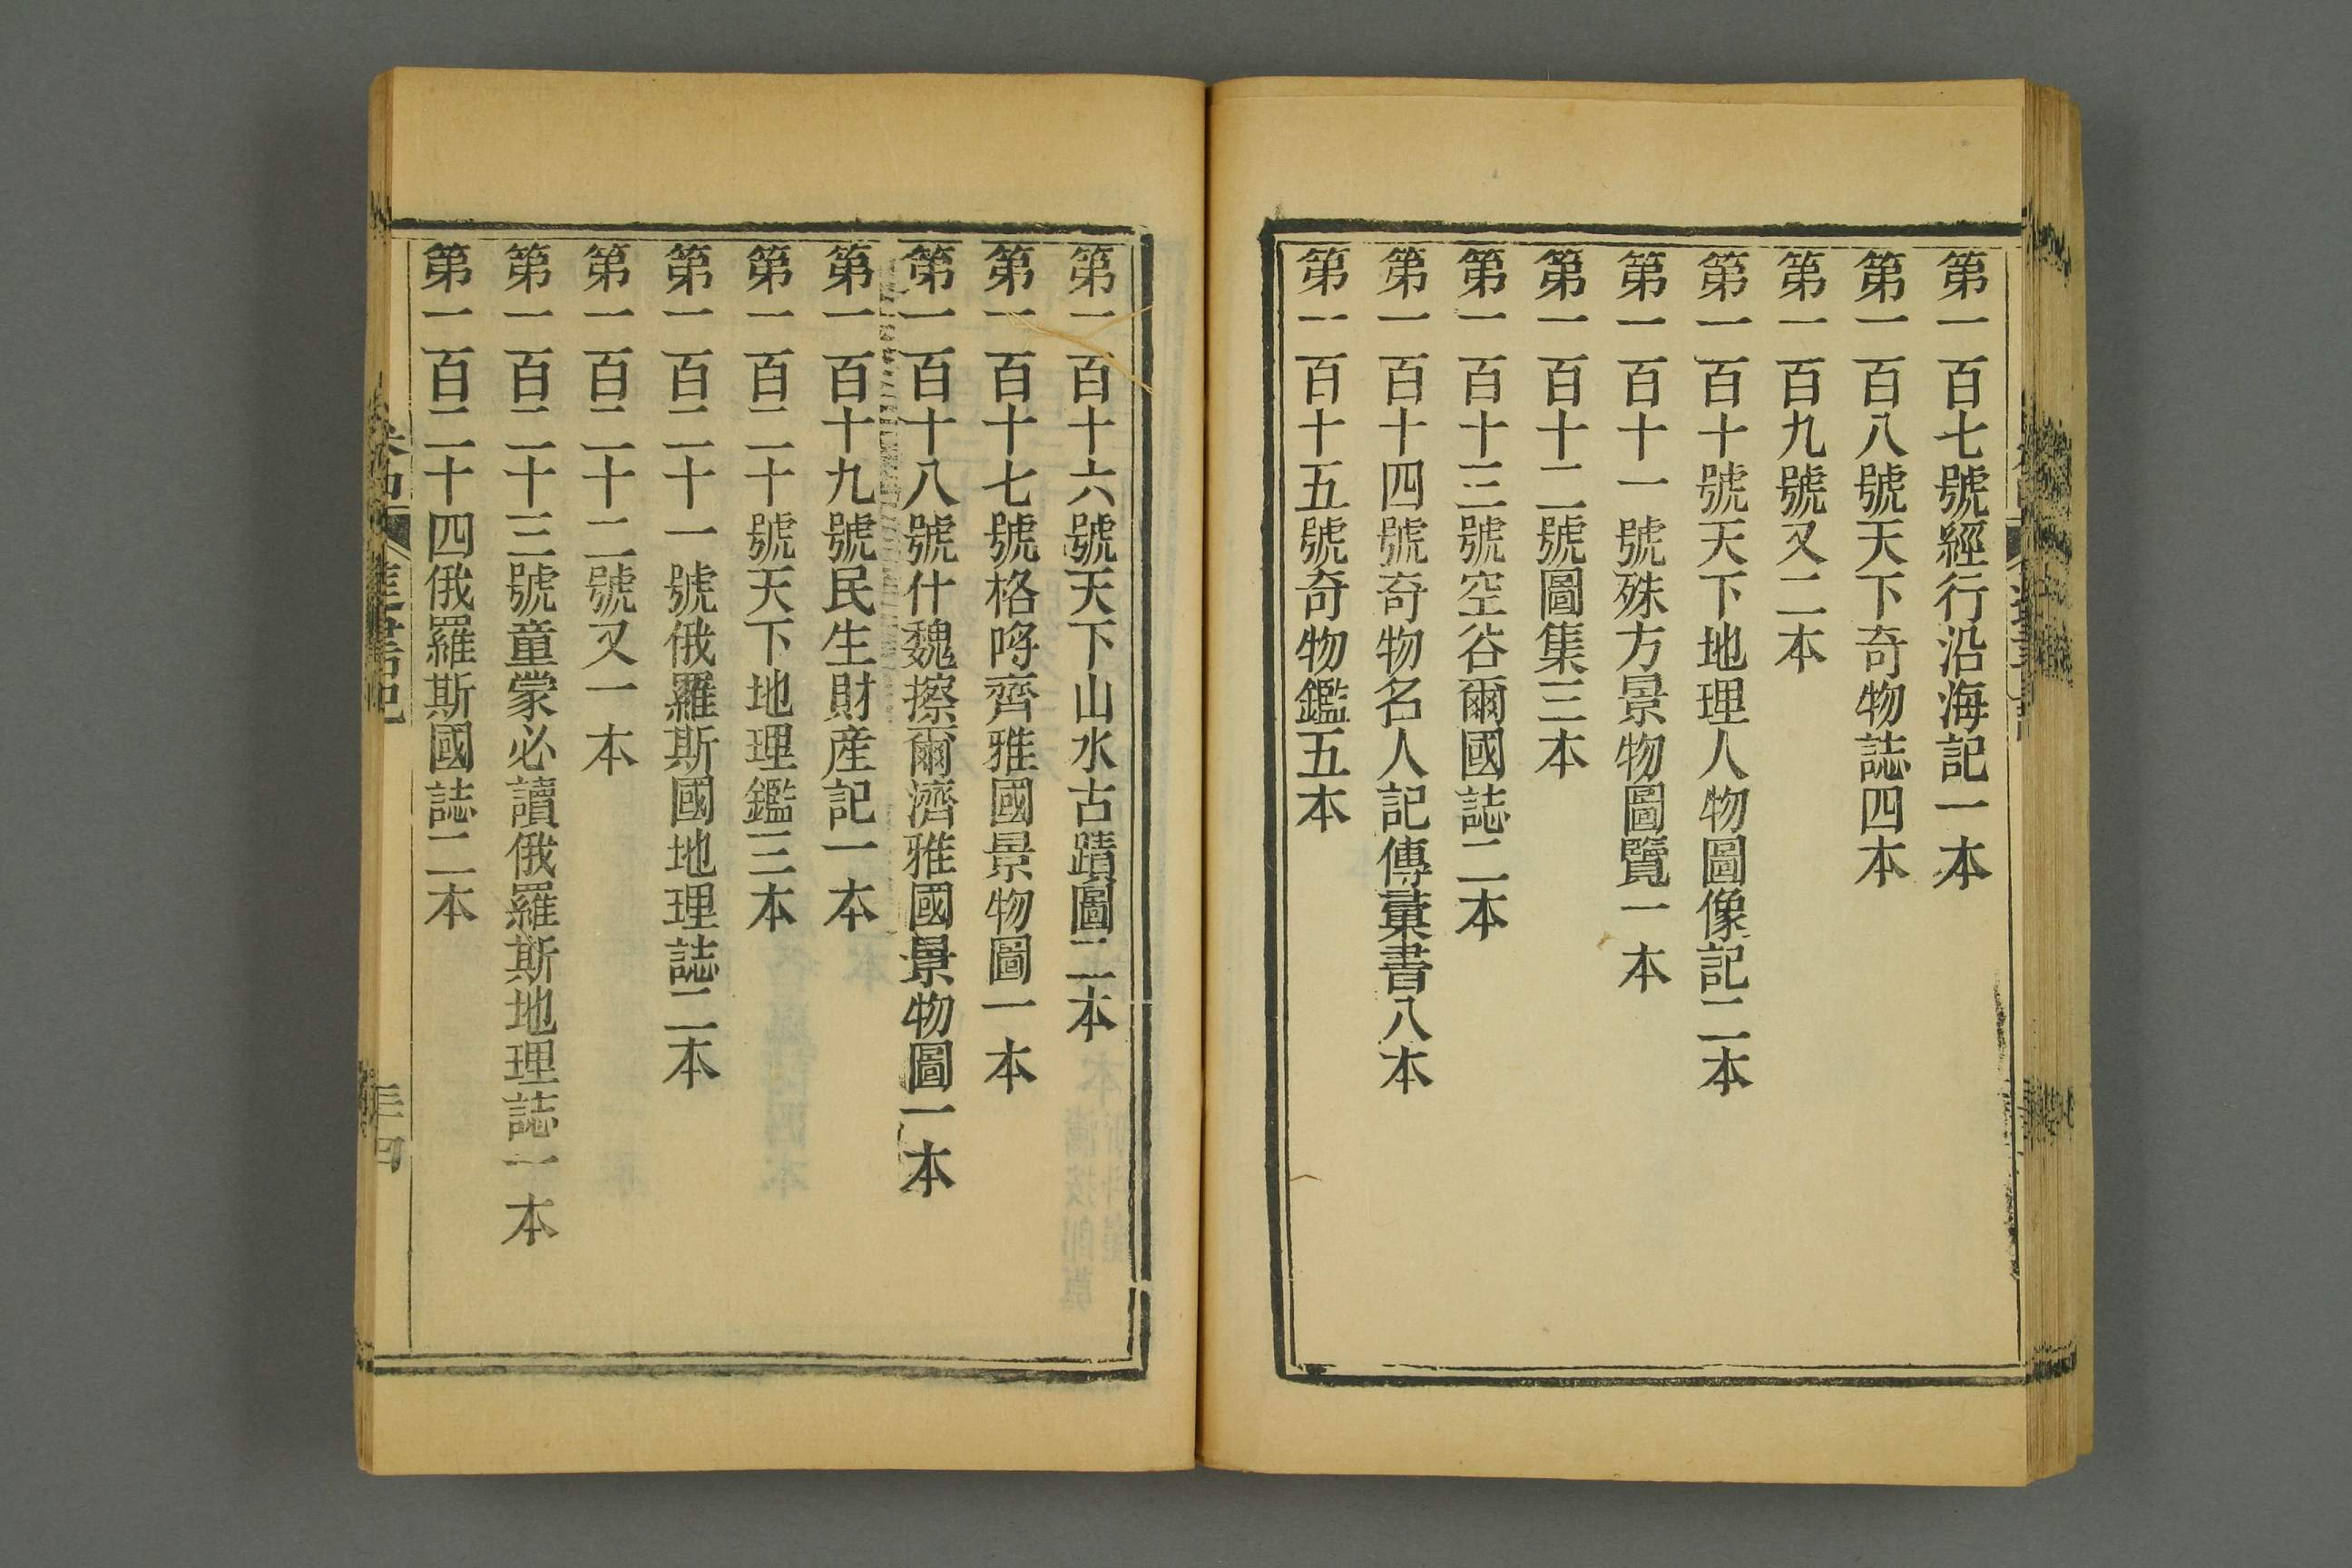 第一百七號經行沿海記一本
第一百八號天下奇物誌四本
第一百九號又二本
第一百十號天下地理人物圖像記二本
第一百十一號殊方景物圖覽一本
第一百十二號圖集三本
第一百十三號空谷爾國誌二本
第一百十四號奇物名人記傳彙書八本
第一百十五號奇物鑑五本
第一百十六號天下山水古蹟圖二本
第一百十七號格哷齊雅國景物圖一本
第一百十八號什魏擦爾濟雅國景物圖一本
第一百十九號民生財産記一本
第一百二十號天下地理鑑三本
第一百二十一號俄羅斯國地理誌二本
第一百二十二號又一本
第一百二十三號童蒙必讀俄羅斯地理誌一本
第一百二十四俄羅斯國誌二本